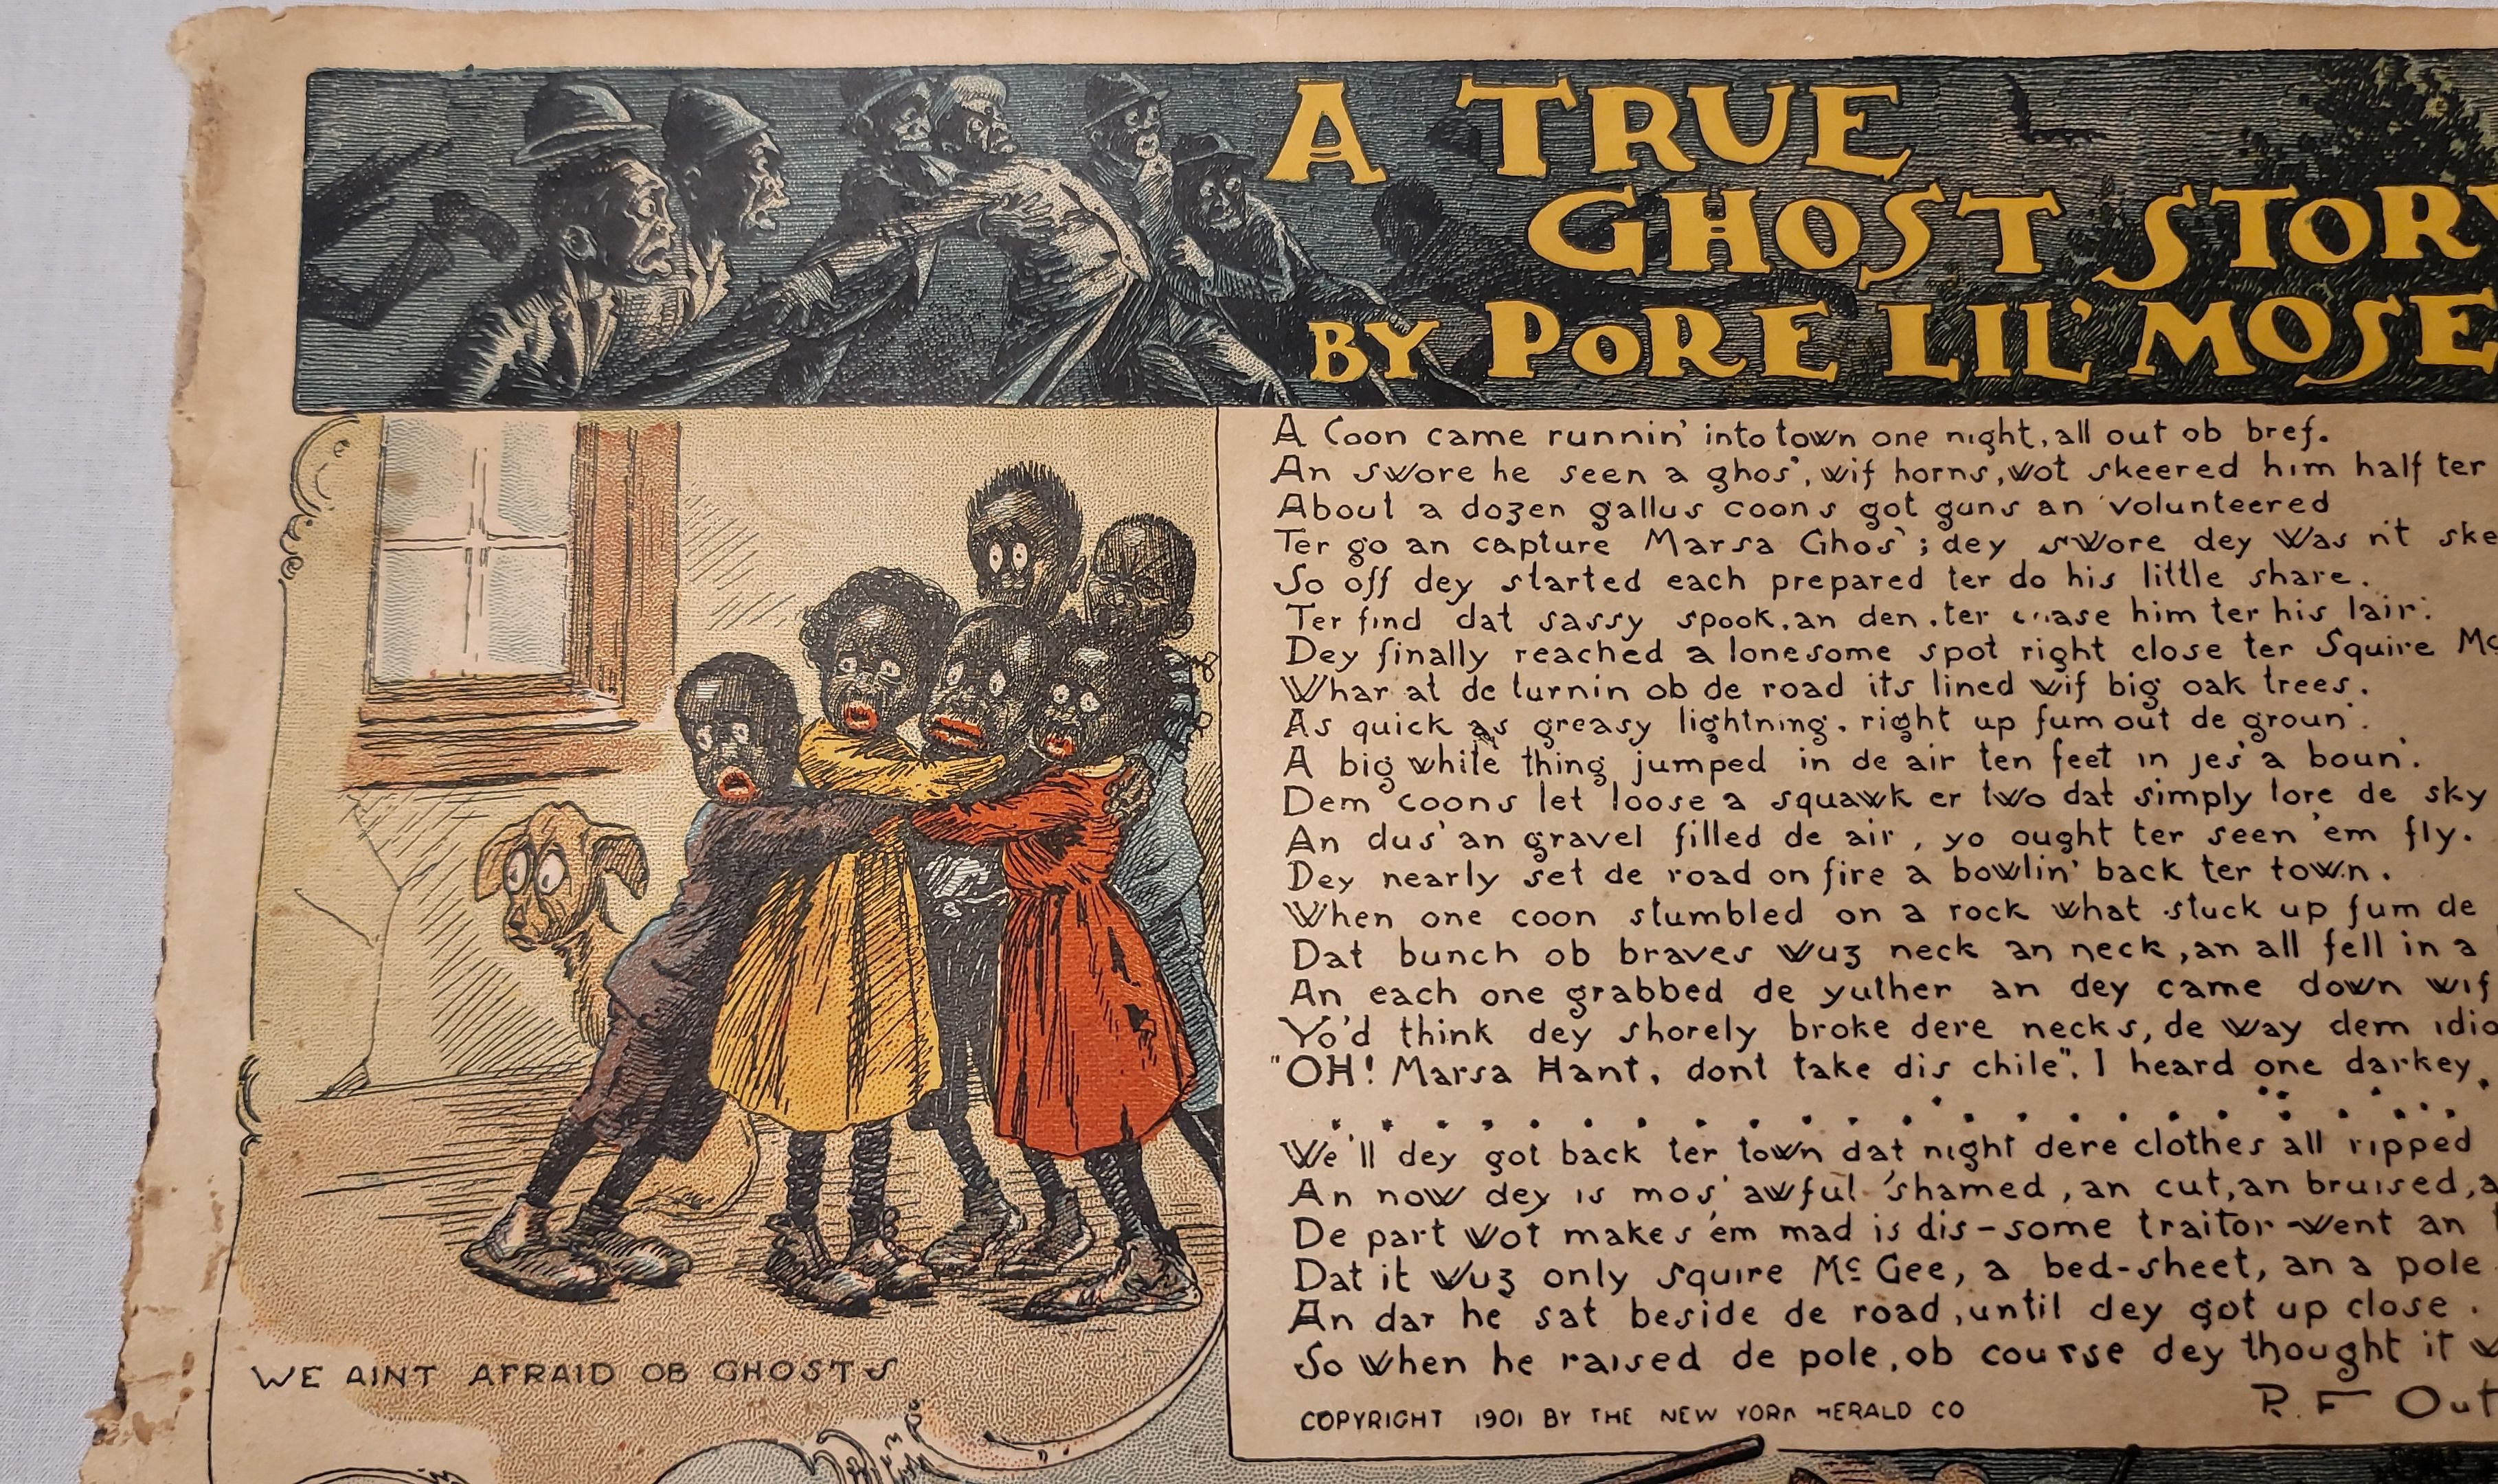 A TRUE
GHOST STORY
BY PORE LIL' MOSE
A Coon came runnin' into town one night, all out ob bref.
An swore he seen a ghos', wif horns, wot skeered him half ter
About a dozen gallus coons got guns an volunteered
Ter go an capture Marsa Ghos'; dey swore dey was n't ske
So off dey started each prepared ter do his little share.
Ter find dat sassy spook, an den, ter chase him ter his lair.
Dey finally reached a lonesome spot right close ter Squire Mc
Whar at de turnin ob de road its lined wif big oak trees.
As quick as greasy lightning, right up fum out de groun'.
A big white thing jumped in de air ten feet in jes' a boun'.
Dem coons let loose a squawk er two dat simply tore de sky
An dus' an gravel filled de air, yo ought ter seen 'em fly.
Dey nearly set de road on fire a bowlin' back ter town.
When one coon stumbled on a rock what stuck up fum de
Dat bunch ob braves wuz neck an neck, an all fell in a
An each one grabbed de yuther an dey came down wif
Yo'd think dey shorely broke dere necks, de way dem idio
"OH! Marsa Hant, dont take dis chile", I heard one darkey
We'll dey got back ter town dat night dere clothes all ripped
An now dey is mos' awful 'shamed, an cut, an bruised, a
De part wot makes 'em mad is dis - some traitor went an
Dat it wuz only squire McGee, a bed-sheet, an a pole
An dar he sat beside de road, until dey got up close.
So when he raised de pole, ob course dey thought it
COPYRIGHT 1901 BY THE NEW YORK HERALD CO
R. F Out
WE AINT AFRAID OB GHOSTS